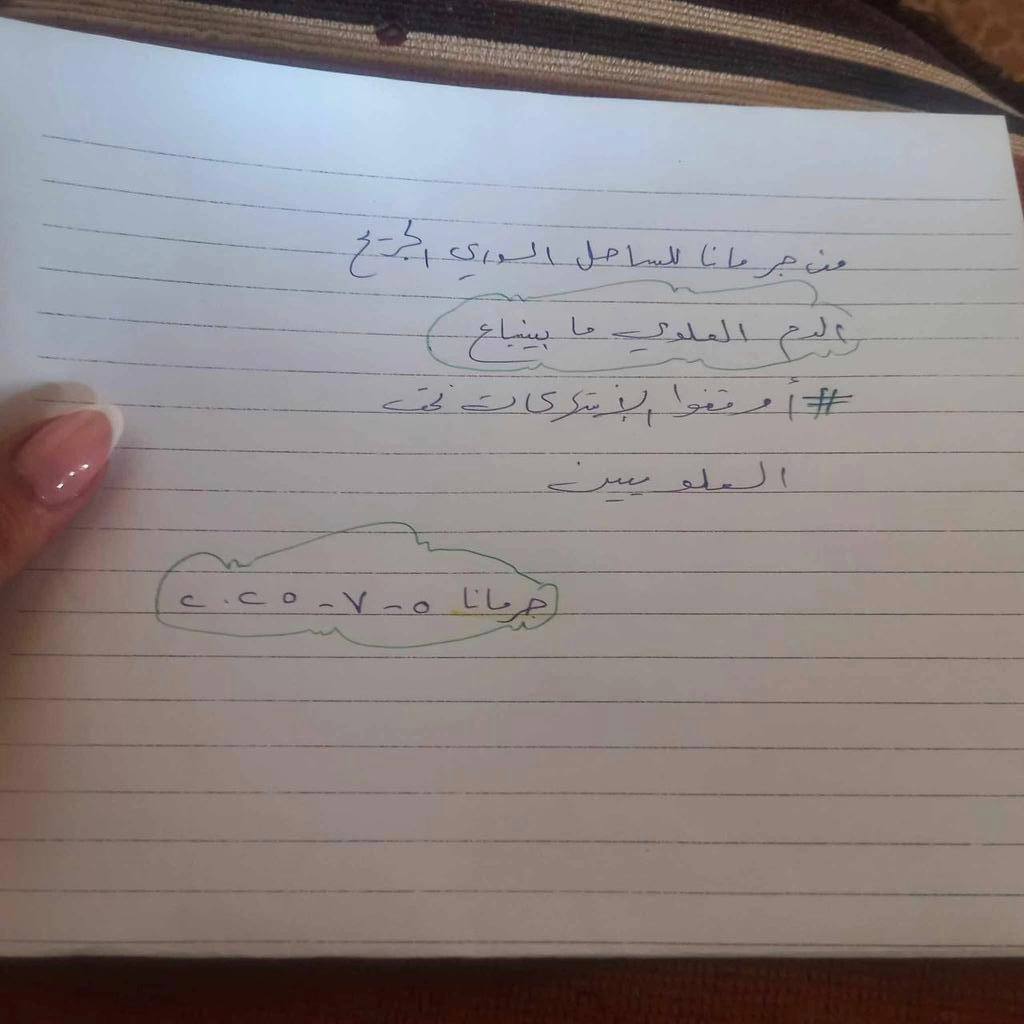 من جرمانا للساحل السوري الجريح
الدم العلوي ما بينباع
#أوقفوا الإنتهاكات بحق
العلويين
جرمانا ٥-٧-٢٠٢٥